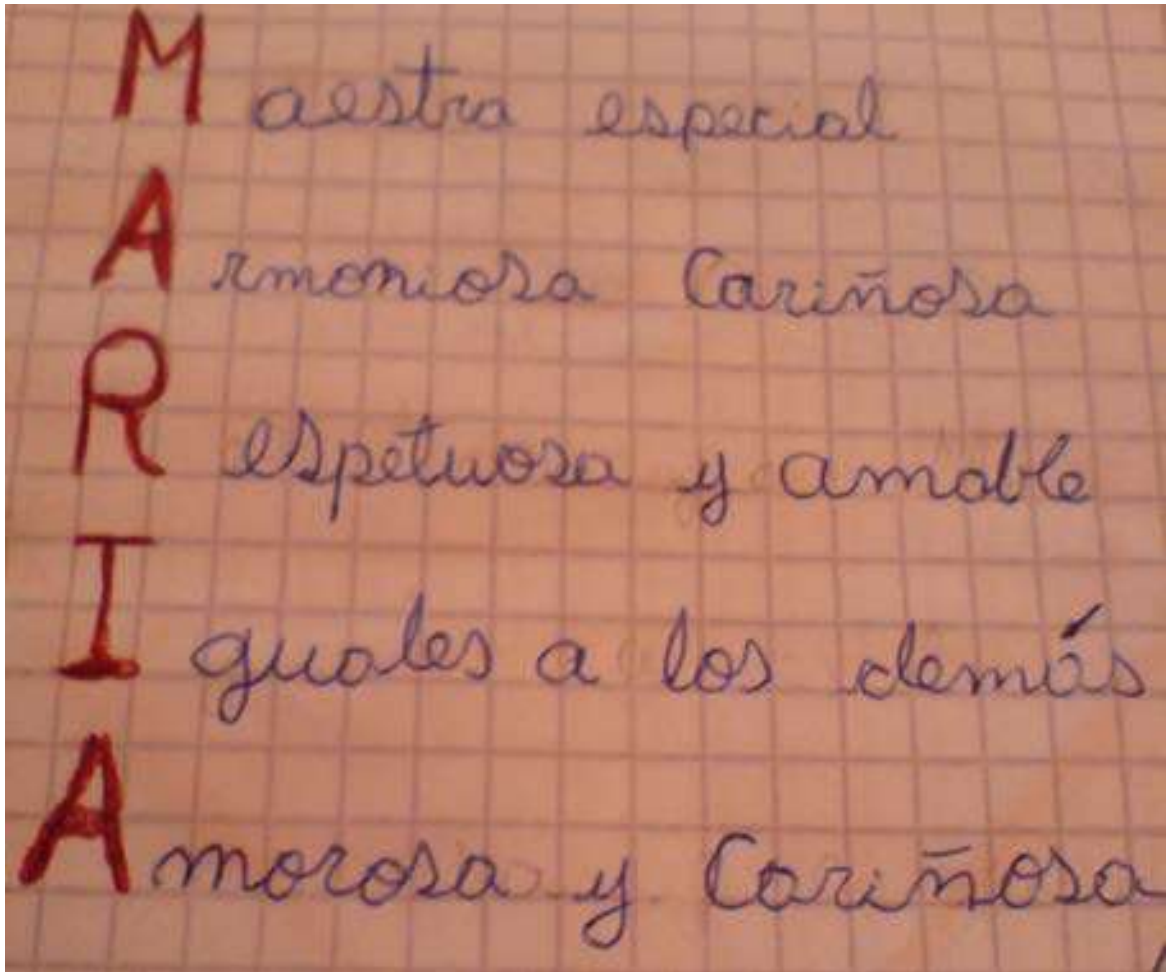 Maestra especial
Armoniosa Cariñosa
Respetuosa y amable
Iguales a los demás
Amorosa y Cariñosa